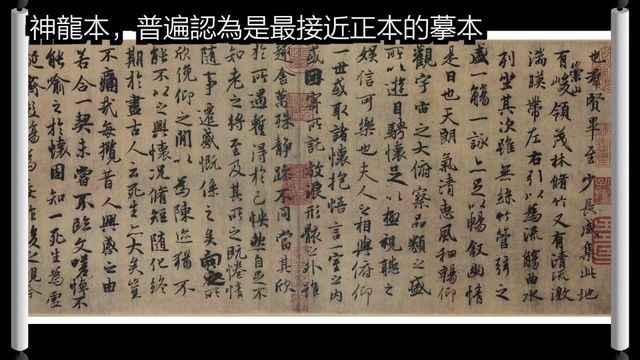 神龍本，普遍認為是最接近正本的摹本
也群賢畢至少長咸集此地
有崇山峻領茂林脩竹又有清流激
湍暎帶左右引以為流觴曲水
列坐其次雖無絲竹管弦之
盛一觴一詠亦足以暢敘幽情
是日也天朗氣清惠風和暢仰
觀宇宙之大俯察品類之盛
所以遊目騁懷足以極視聽之
娛信可樂也夫人之相與俯仰
一世或取諸懷抱悟言一室之內
或因寄所託放浪形骸之外雖
趣舍萬殊靜躁不同當其欣
於所遇暫得於己怏然自足不
知老之將至及其所之既惓情
隨事遷感慨係之矣向之所
欣俛仰之閒以為陳迹猶不
能不以之興懷況脩短隨化終
期於盡古人云死生亦大矣豈
不痛哉每攬昔人興感之由
若合一契未嘗不臨文嗟悼不
能喻之於懷固知一死生為虛
誕齊彭殤為妄作後之視今